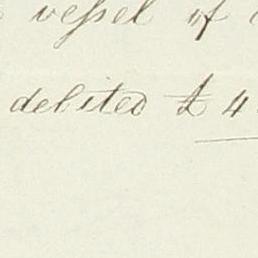 vessel of
debited £ 4